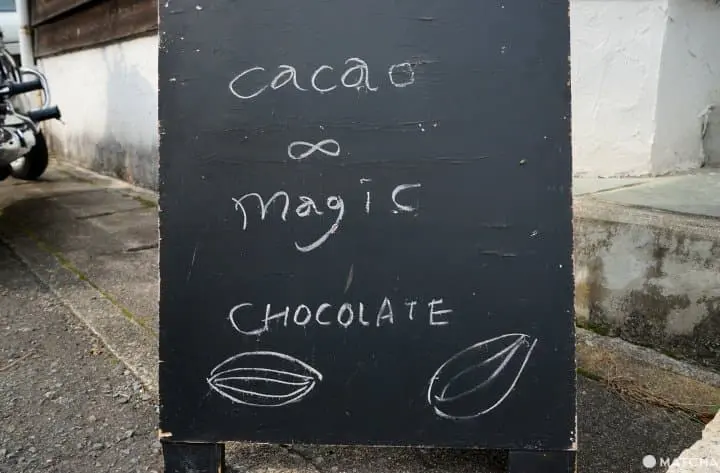 cacao
∞
magic
CHOCOLATE
MATCHA